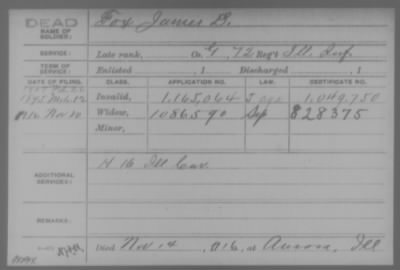 DEAD
NAME OF SOLDIER: Fox James D.
SERVICE: Late rank, Co. G, 72 Reg't Ill. Inf.
TERM OF SERVICE: Enlisted , 1 Discharged , 1
DATE OF FILING. CLASS. APPLICATION NO. LAW. CERTIFICATE NO.
1895 Invalid, 1,165,064 1,049,750
1916 Nov 20 Widow, 1086590 Sep 828375
Minor,
ADDITIONAL SERVICES: H 16 Ill Cav.
REMARKS:
Died Nov 14, 1916, at Aurora, Ill